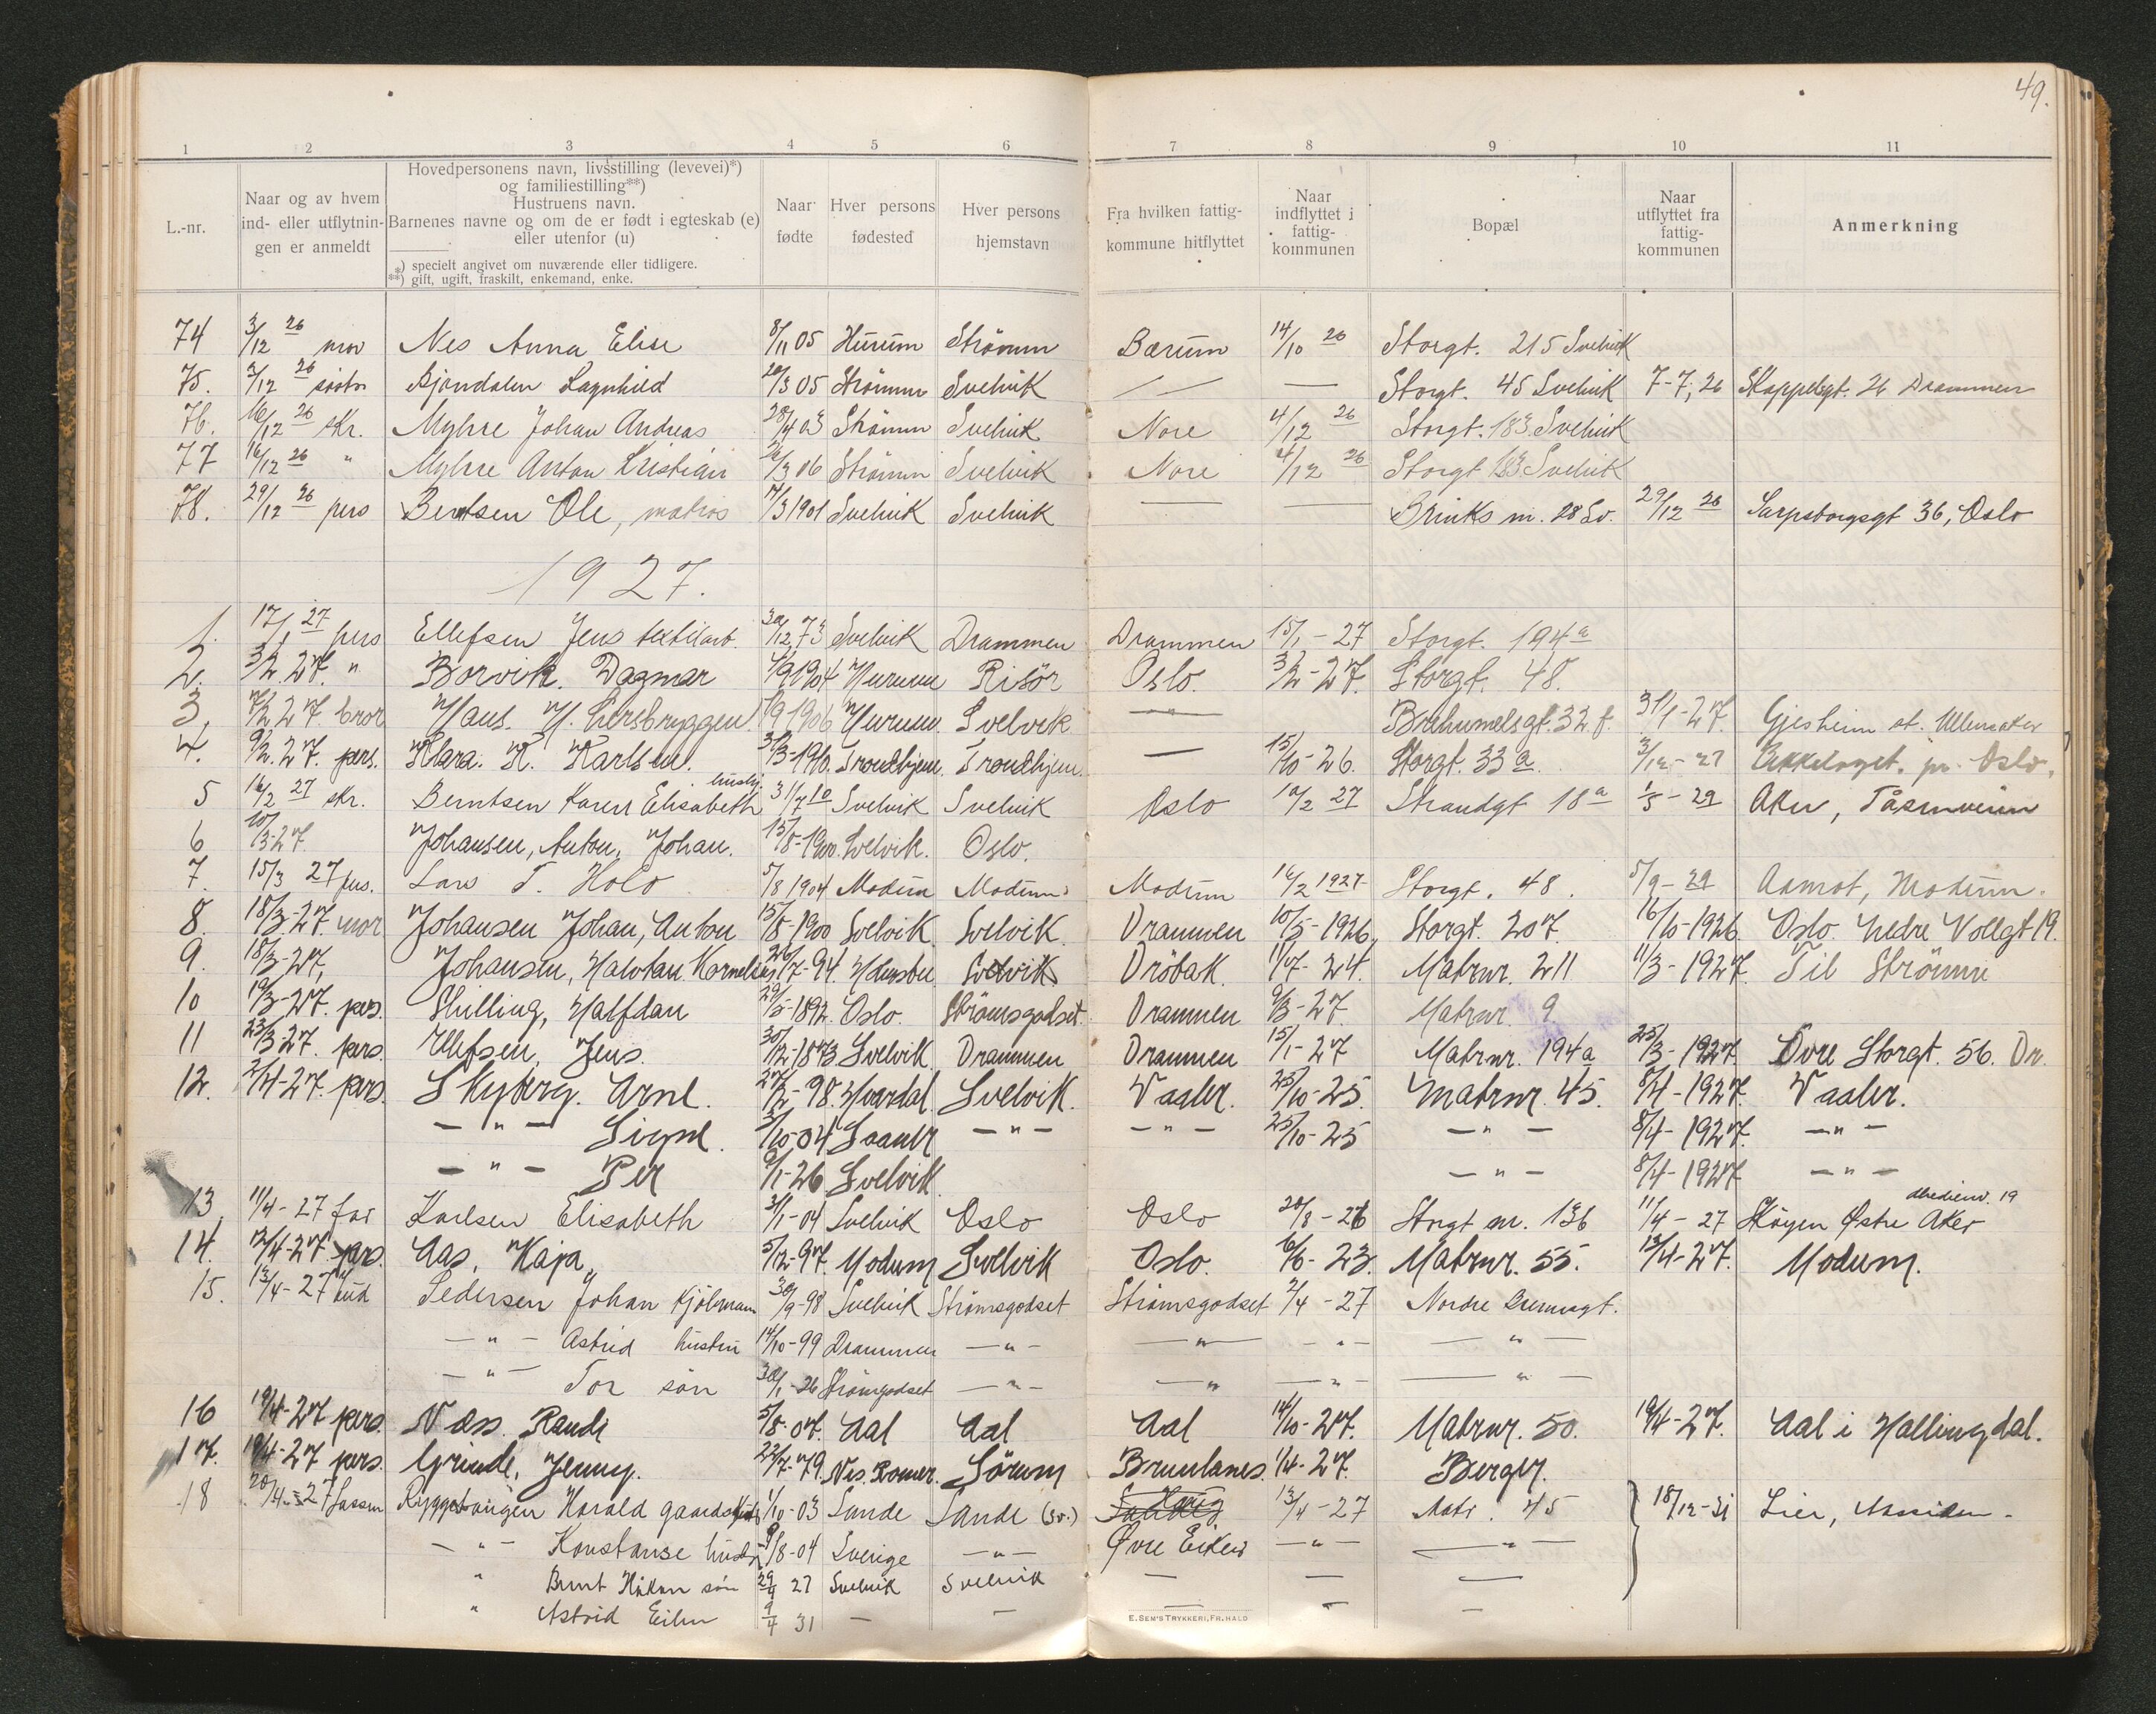 49.
1 2 3 4 5 6 7 8 9 10 11
L.-nr.
Naar og av hvem
ind- eller utflytnin-
gen er anmeldt
Hovedpersonens navn, livsstilling (levevei)*)
og familiestilling**)
Hustruens navn.
Barnenes navne og om de er født i egteskab (e)
eller utenfor (u)
*) specielt angivet om nuværende eller tidligere.
**) gift, ugift, fraskilt, enkemand, enke.
Naar
fødte
Hver persons
fødested
Hver persons
hjemstavn
Fra hvilken fattig-
kommune hitflyttet
Naar
indflyttet i
fattig-
kommunen
Bopæl
Naar
utflyttet fra
fattig-
kommunen
Anmerkning
74 3/12 26 mor Nes Anna Elise 8/11 05 Hurum Strömm Bærum 14/10 26 Storgt. 215 Svelvik
75. 3/12 26 søster Bjøndalen Ragnhild 20/3 05 Strömm Svelvik — — Storgt. 45 Svelvik 7-7, 26 26 Drammen
76. 16/12 26 skr. Myhre Johan Andreas 28/4 03 Strömm Svelvik Nore 4/12 26 Storgt. 183 Svelvik
77 16/12 26 " Myhre Anton Kristian 3 06 Strömm Svelvik Nore 4/12 26 Storgt 183 Svelvik
78. 29/12 26 pers Berntsen Ole, matros 7/3 1901 Svelvik Svelvik — — Brinks m. 28 Sv. 29/12 26 Sarpsborgsgt 36, Oslo
1927.
1. 17/1 27 pers Ellefsen Jens textilarb. 30/12 73 Svelvik Drammen Drammen 15/1 - 27 Storgt. 194a
2. 3/2 27. " Borvik. Dagmar 4/9 1904 Hurum Risör Oslo. 3/2-27. Storgt. 48.
3. 7/2 27. bror Hans. H. Lersbryggen 9 1906 Hurum. Svelvik — Brehumelsgt. 32 f. 31/1-27. Gjesheim st. Ullensaker
4. 9/2. 27. pers. Klara. K. Karlsen. 31/3-1910. Trondhjem. Trondhjem. — 15/10-26. Storgt. 33a. 3/12-27 Bekkelaget. pr. Oslo.
5 16/2 27 skr. Berntsen Karen Elisabeth hushj. 31/7 10 Svelvik Svelvik Oslo 10/2 27 Strandgt 18a 1/5-29 Aker, Tåsenveien
6 10/3-27. Johansen, Anton, Johan. 15/8-1900. Svelvik. Oslo.
7. 15/3 27 pers. Lars T. Holo 5/8 1904 Modum Modum. Modum 16/2 1927 Storgt. 48. 5/9-29 Aamot, Modum.
8. 18/3-27. mor Johansen Johan, Anton 15/8-1900 Svelvik. Svelvik. Drammen 10/5-1926. Storgt. 207. 16/10-1926. Oslo. Nedre Vollgt 19.
9. 18/3-27, Johansen, Halvdan Kornelius 26/7-94. Svelvik Dröbak. 11/7-24. Matrnr. 211 11/3-1927. Til Strömm
10 19/3-27. pers. Skilling, Halfdan 29/5-1892. Oslo. Strömsgodset. Drammen 9/3-27. Matrnr. 9.
11 23/3-27. pers. Ellefsen, Jens. 30/12-1873 Svelvik. Drammen Drammen 15/1-27 Matrnr. 194a 25/3-1927. Övre Storgt. 56. Dr.
12. 2/4-27. pers. Skyberg. Arne. 27/2-98. Svelvik. Vaaler. 25/10-25. Matrnr. 45. 8/4-1927. Vaaler.
— " — Signe. 3/10-04 — " — — " — 25/10-25 — " — 8/4-1927. — " —
— " — Per 9/1-26 Svelvik. — " — 8/4-1927 — " —
13. 11/4-27 far Karlsen Elisabeth 21/1-04 Svelvik Oslo Oslo 20/8-26 Storgt nr. 136 11/4-27 Skøyen Østre Aker 19
14. 12/4-27. pers. Aas, Kaja. 5/12-97. Modum Svelvik Oslo. 6/6-23. Matrnr. 55. 13/4-27. Modum.
15. 13/4-27 bud Pedersen Johan Kjölmann 30/9-98 Svelvik Strömsgodset Strömsgodset 2/4-27 Nordre Brennagt.
— " — Astrid hustru 14/10-99 Drammen — " — — " — — " — — " —
— " — Tor sön 30/1-26 Strömsgodset — " — — " — — " — — " —
16 19/4-27 pers. Næss. Randi 5/8-07. Aal Aal Aal 14/10-27. Matrnr. 50. 19/4-27. Aal i Hallingdal.
17. 19/4-27 pers. Grinde, Jenny. 22/7-79. Nes. Romer. Sörum Brunlanes. 1/4-27. Berger.
18 20/4-27 Ryggetangen Harald 1/10-03 Sande Sande (Sv.) 13/4-27 Matr. 45 18/12-31 Lier,
— " — Konstanse hustru 8/8-04 Sverige — " — Øvre Eiker — " — — " —
" Bernt Håkon sön 29/4 27 Svelvik Svelvik — — —
" Astrid 9/4 31 — — — — —
E. SEM'S TRYKKERI, FR.HALD